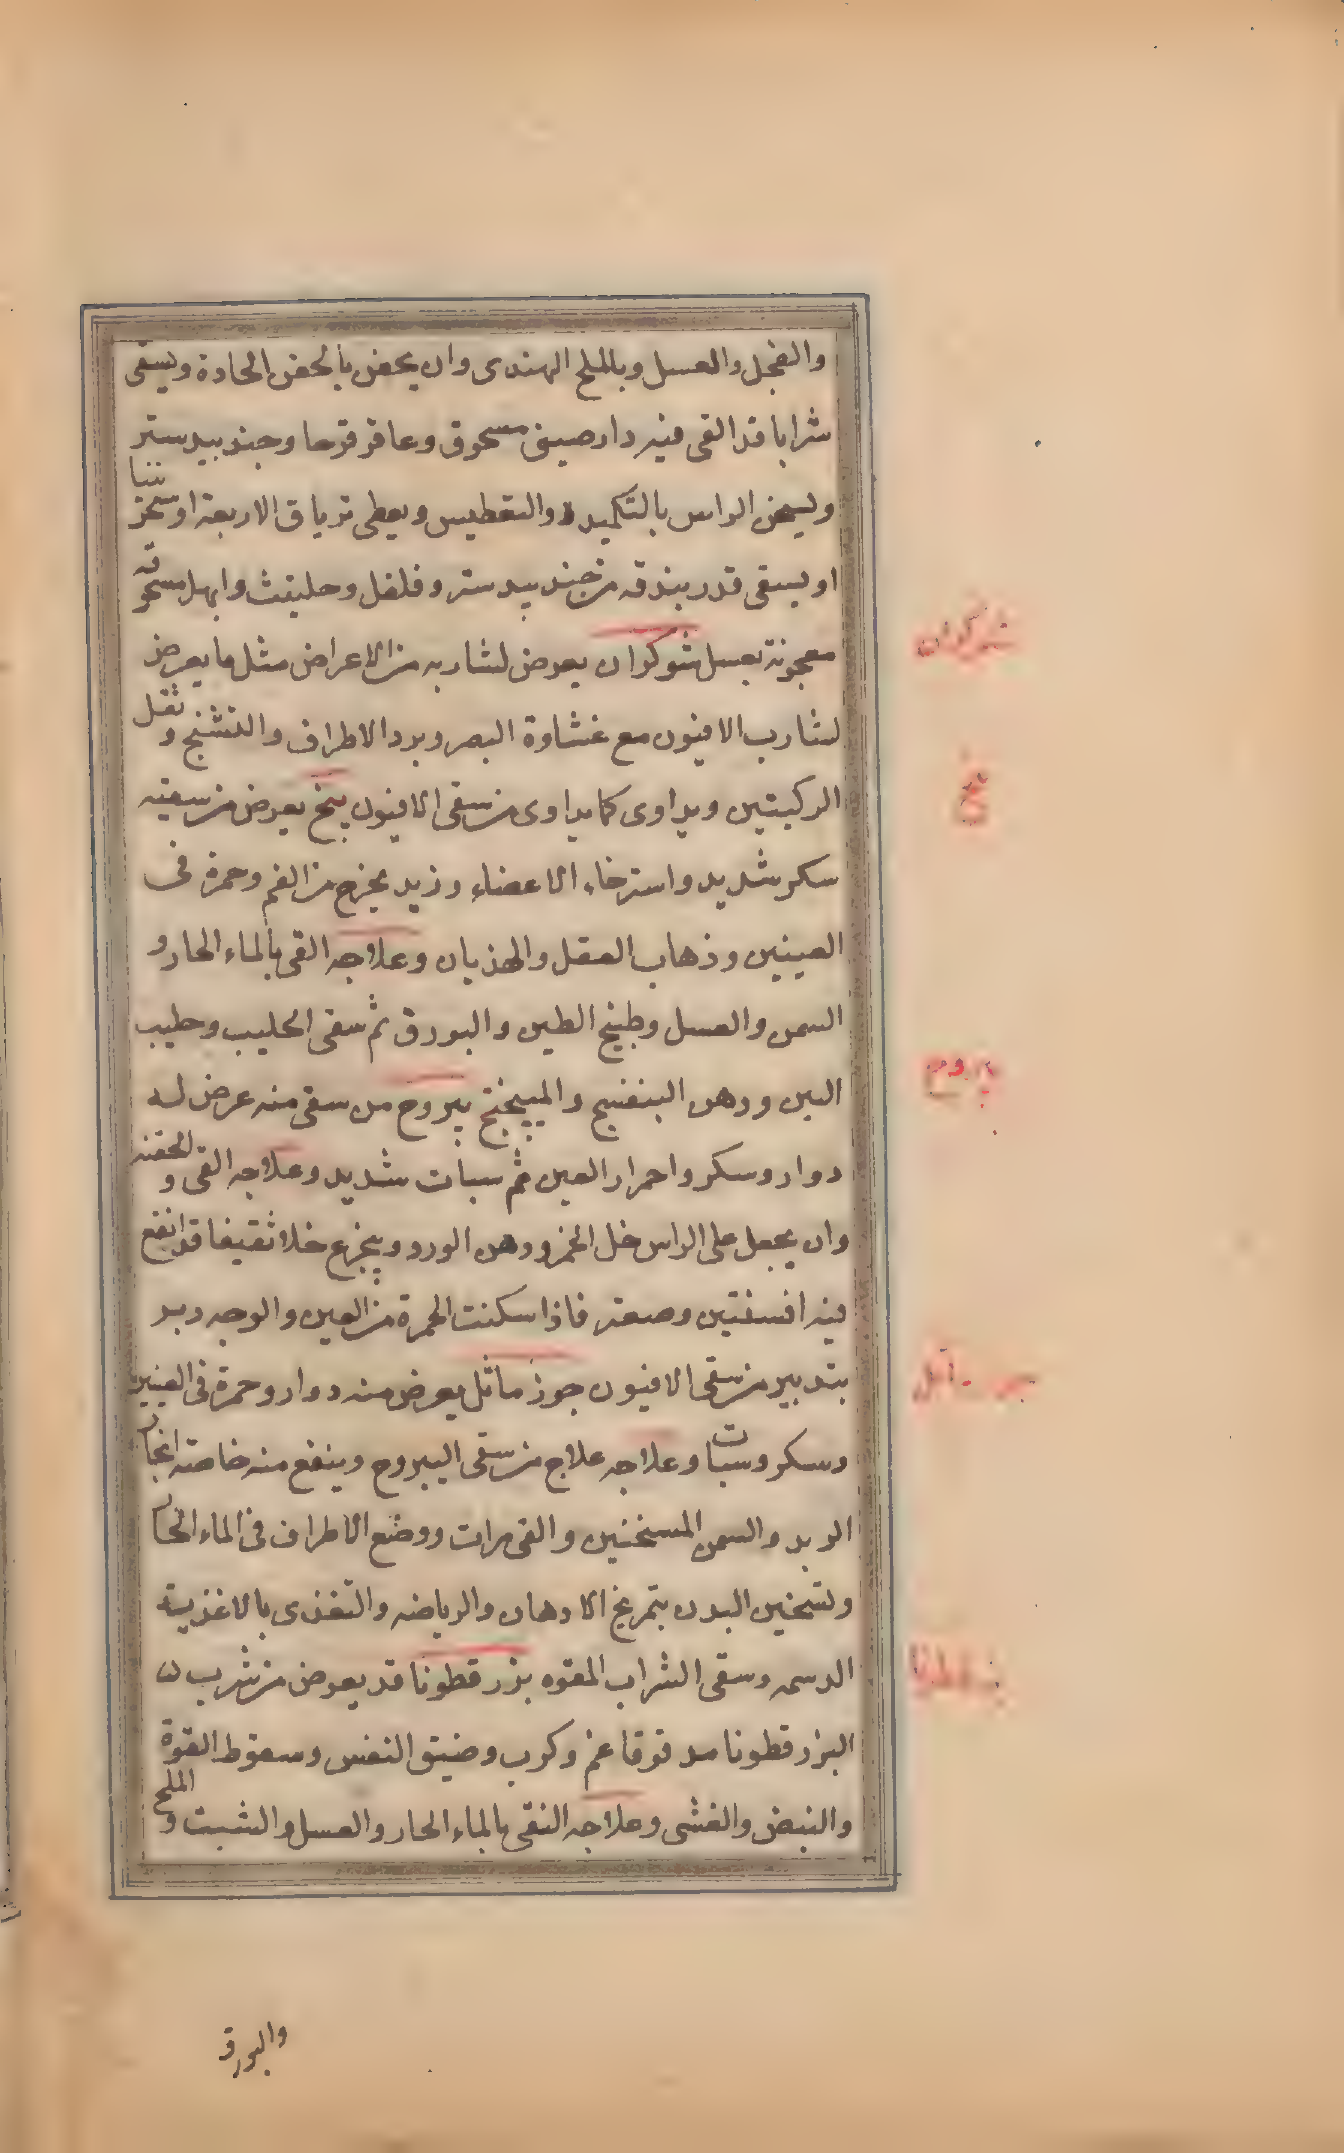 والفجل والعسل وبالملح الهندى وان يحقن بالحقن الحادة ويسقى
شرابا قد القى فيه دارصينى مسحوق وعاقر قرحا وجندبيدستر
ويسخن الراس بالتكميد والتعطيس ويعطى ترياق الاربعة او سجزنيا
او يسقى قدر بندقه من جندبيدستر وفلفل وحلتيث وابهل مسحوقه
معجونة بعسل شوكران يعرض لشاربه من الاعراض مثل ما يعرض
شوكران
لشارب الافيون مع غشاوة البصر وبرد الاطراف والتشنج وثقل
الركبتين ويداوى كما يداوى من سقى الافيون بنج يعرض من سقيه
بنج
سكر شديد واسترخاء الاعضاء وزبد يخرج من الفم وحمرة فى
العينين وذهاب العقل والهذيان وعلاجه القى بالماء الحار و
السمن والعسل وطبيخ الطين والبورق ثم سقى الحليب وحليب
التين ودهن البنفسج والميبختج يبروح من سقى منه عرض له
يبروح
دوار وسكر واحمرار العين ثم سبات شديد وعلاجه القى والحقنه
وان يجعل على الراس خل الخمر ودهن الورد ويتجرع خلا ثقيفا قد انقع
فيه افسنتين وصعتر فاذا سكنت الحمرة من العين والوجه دبر
بتدبير من سقى الافيون جوز ماثل يعرض منه دوار وحمرة فى العينين
جوز ماثل
وسكر وسبات وعلاجه علاج من سقى اليبروح وينفع منه خاصته
الزبد والسمن المسخنين والقى مرات ووضع الاطراف فى الماء الحار
وتسخين البدن بتمريخ الادهان والرياضه والتغذى بالاغذية
الدسمه وسقى الشراب المقوه بزر قطونا قد يعرض من شرب
بزر قطونا
البزر قطونا مدقوقا غم وكرب وضيق النفس وسقوط القوة
والنبض والغشى وعلاجه التقى بالماء الحار والعسل والشبت والملح
والبورق